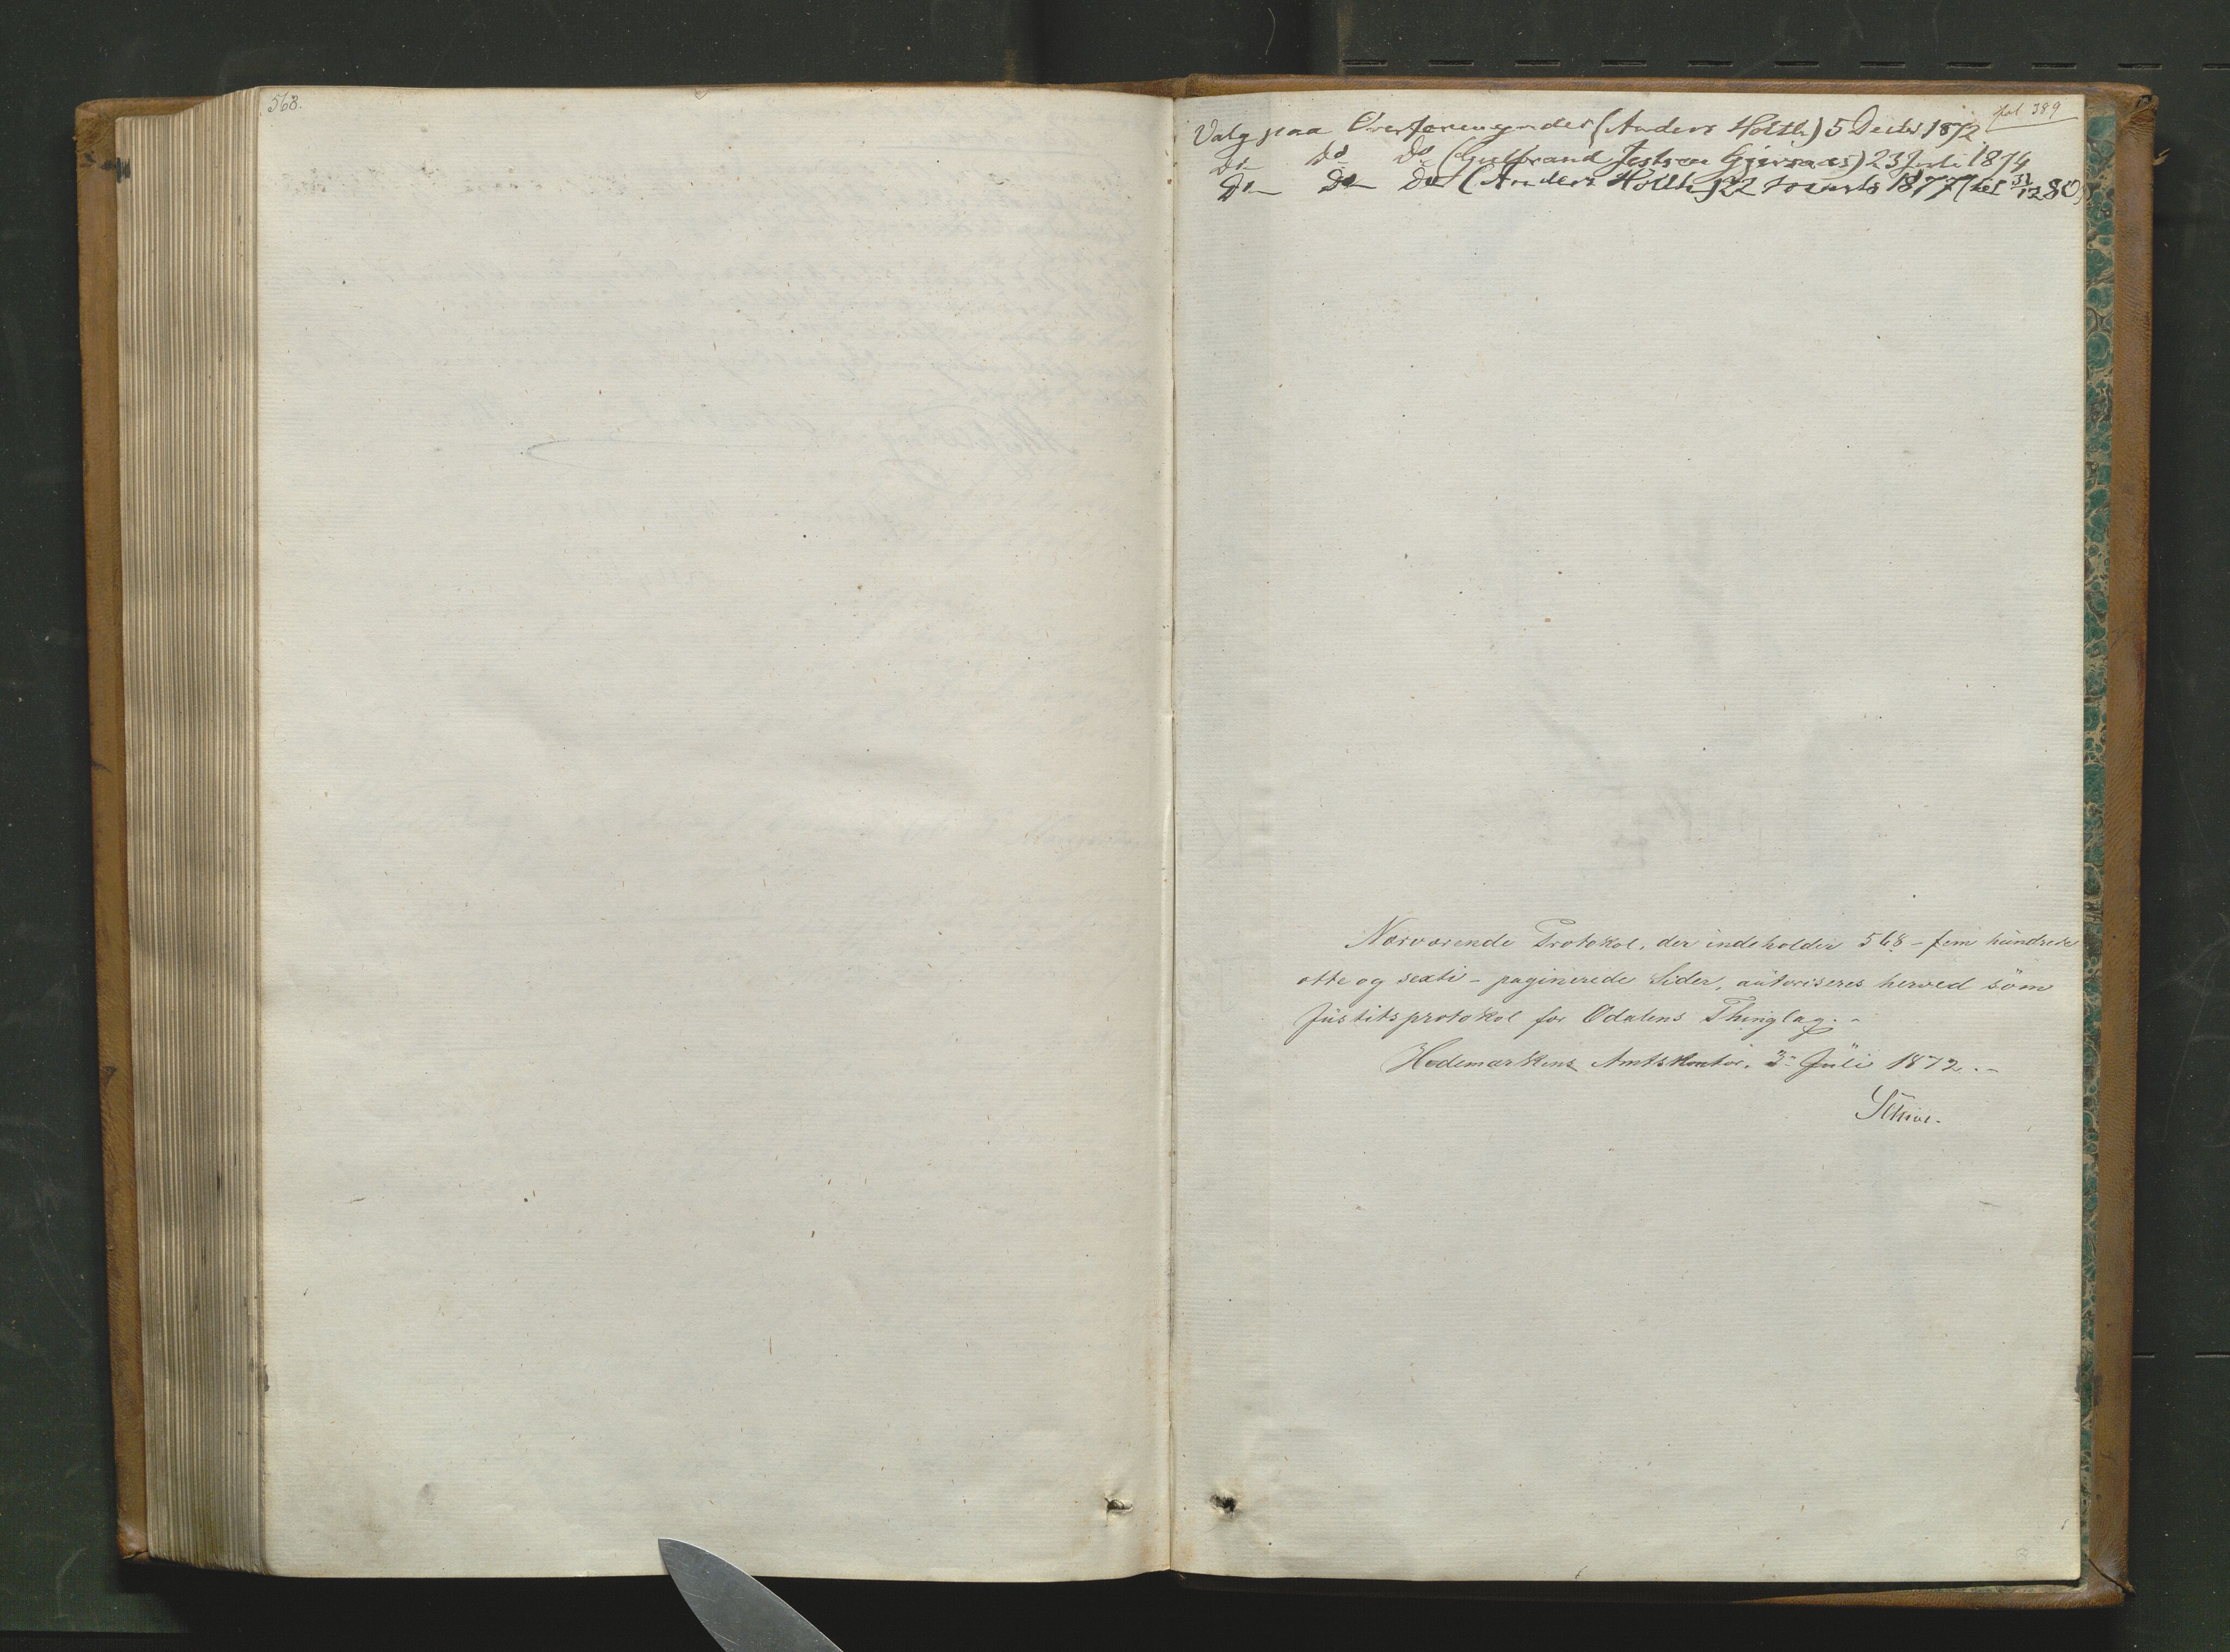 568.
fol 389
Valg paa Overformynder (Anders Holth) 5 Decbr 1872
Do Do Do (Gulbrand Gjersaas) 23 Juli 1874
Do Do Do (Anders Holth) 22 1877 (til 31/12 80)
Nærværende Protokol, der indeholder 568 - fem hundrede
otte og sexti - paginerede Sider, autoriseres herved som
Justitsprotokol for Odalens Thinglag. -
Hedemarkens Amtskontor, 3 Juli 1872. -